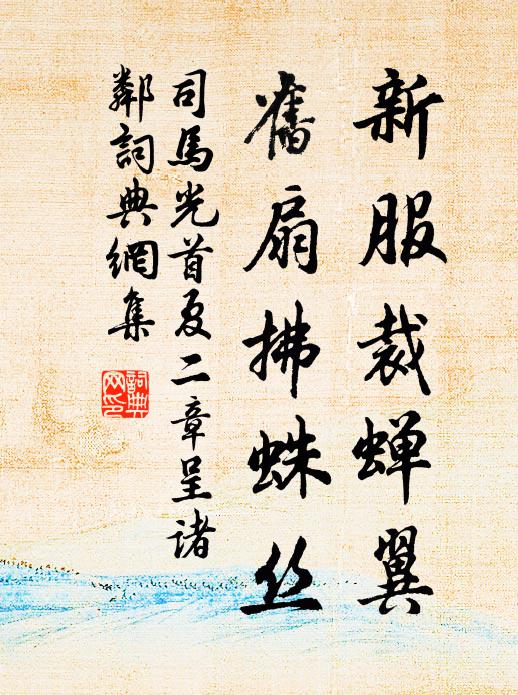 新服裁蝉翼
舊扇拂蛛丝
司馬光首夏二章呈诸
鄰詞典網集
詞典
网印